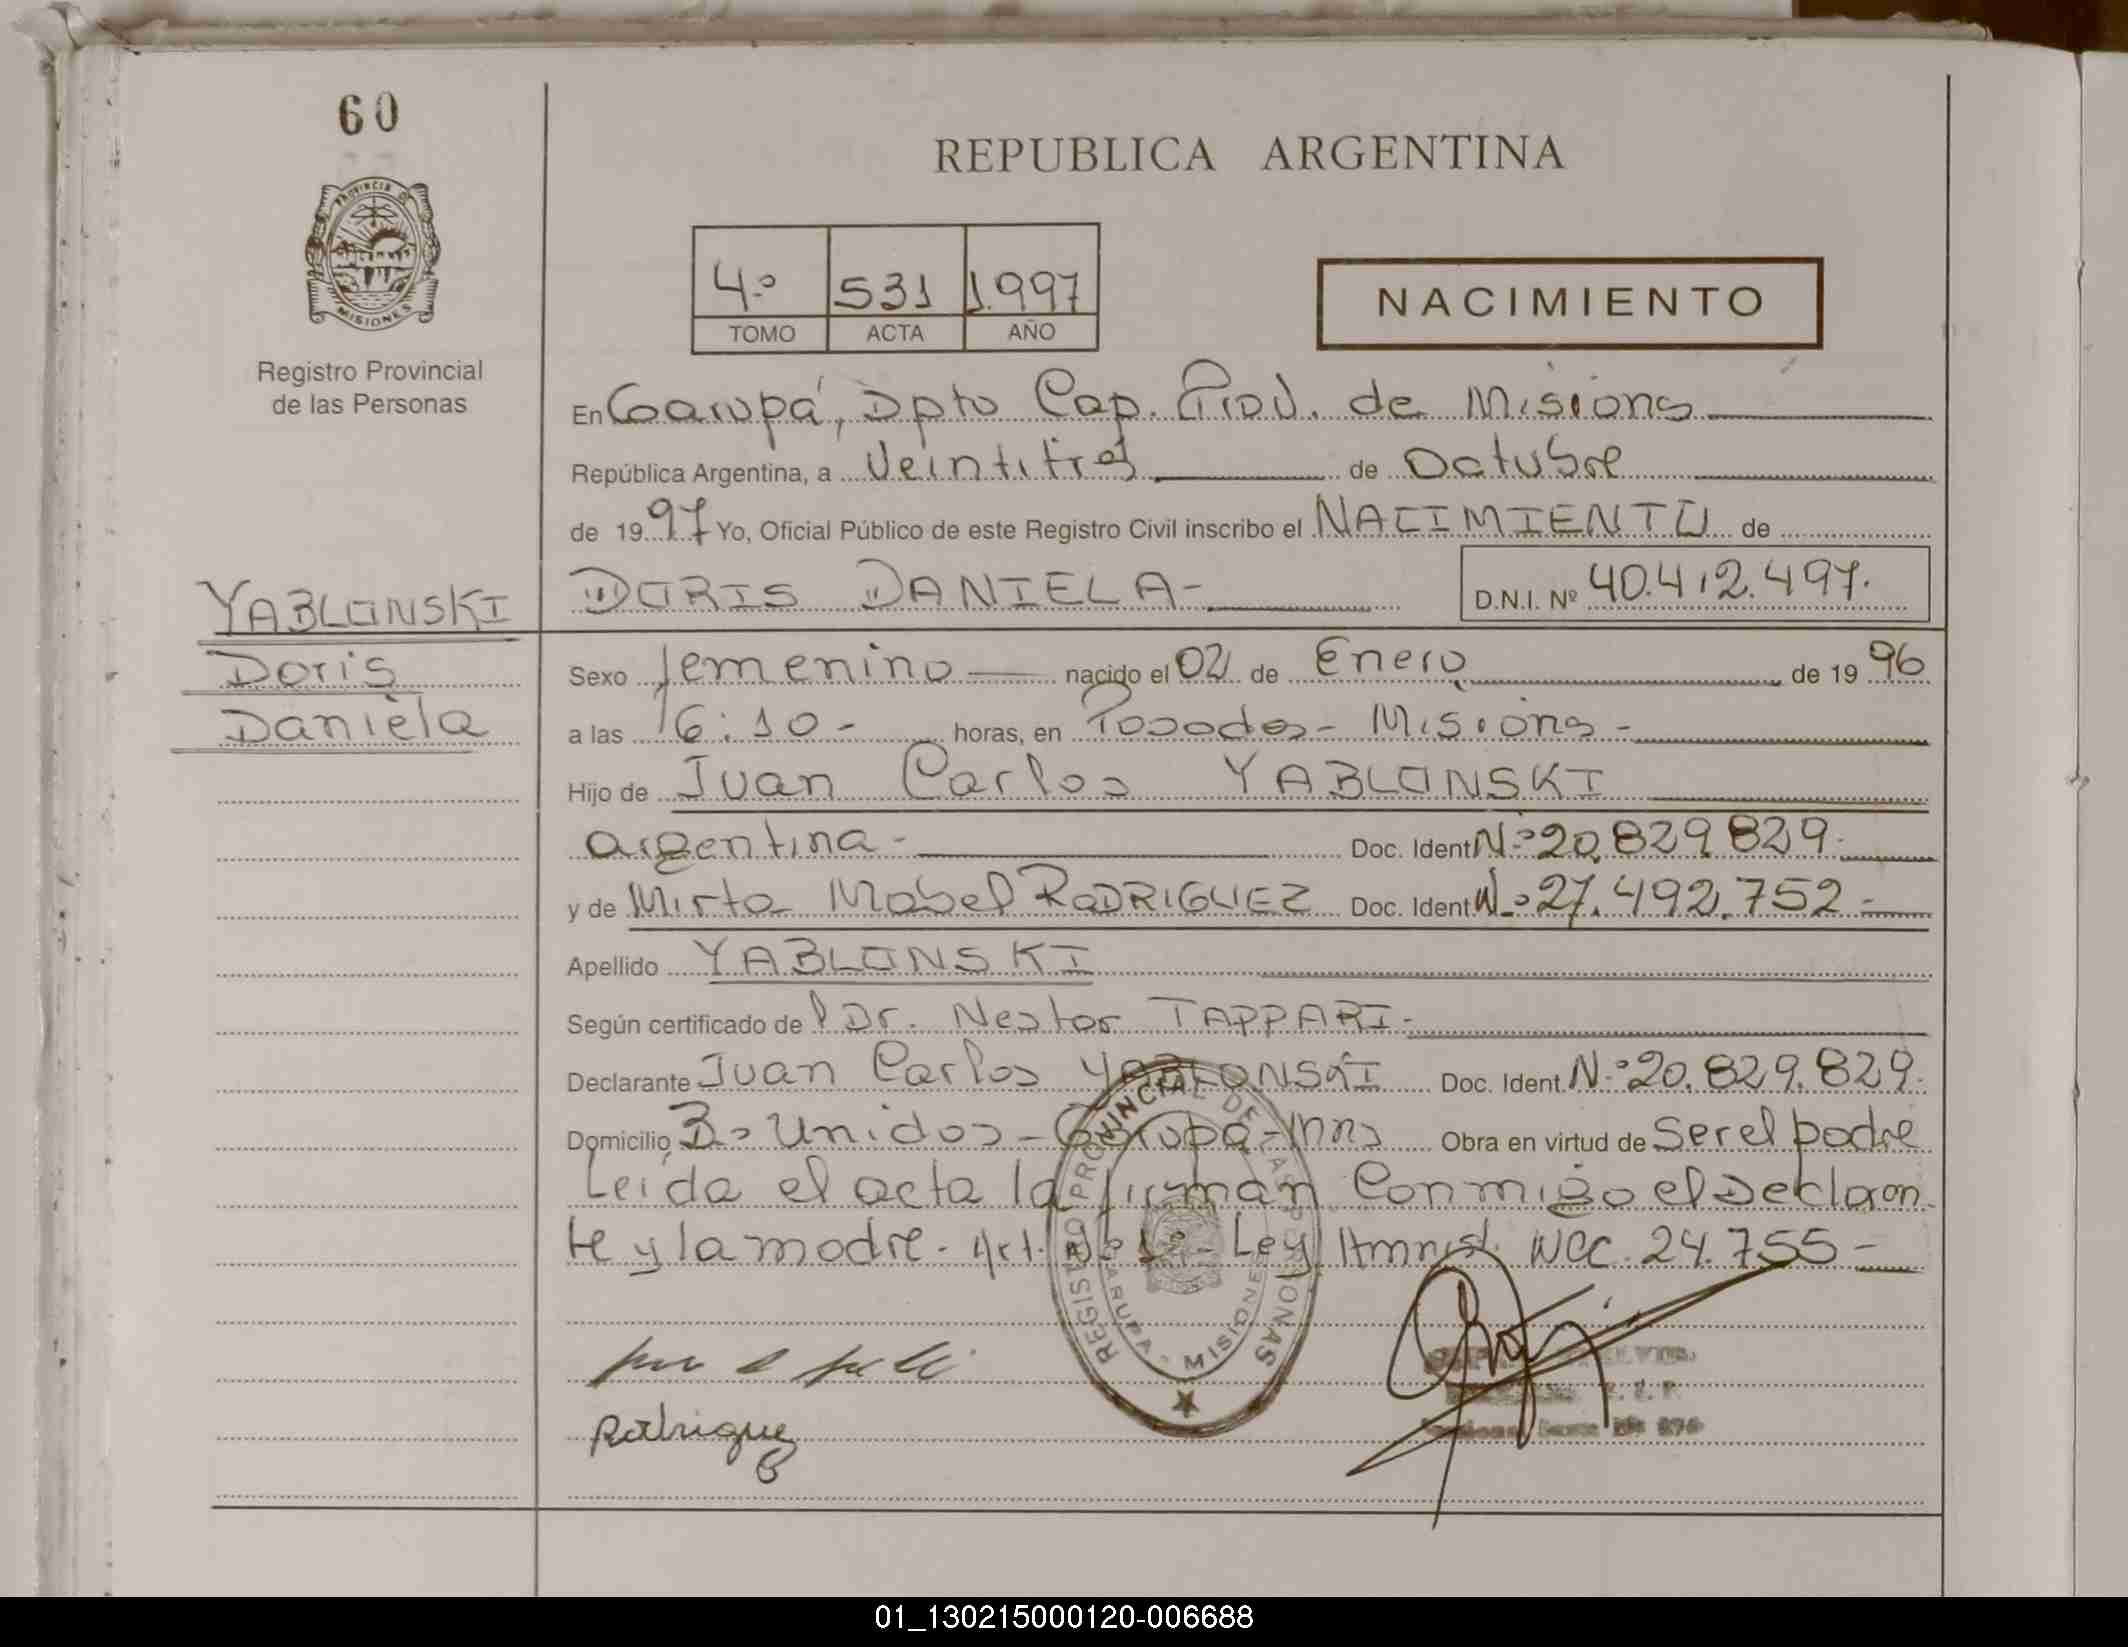 60
REPUBLICA ARGENTINA
PROVINCIA DE
MISIONES
Registro Provincial
de las Personas
4.º 531 1.997
TOMO ACTA AÑO
NACIMIENTO
En Garupá, Dpto Cap. Prov. de Misiones
República Argentina, a Veintitres de Octubre
de 1997 Yo, Oficial Público de este Registro Civil inscribo el NACIMIENTO de
"DORIS DANIELA- D.N.I. Nº 40.412.497.
YABLONSKI
Doris
Daniela
Sexo femenino nacido el 02 de Enero de 1996
a las 16:10- horas, en Posadas- Misiones-
Hijo de Juan Carlos YABLONSKI
argentina- Doc. Ident. N.º 20.829.829.
y de Mirta Mabel RODRIGUEZ Doc. Ident. N.º 27.492.752-
Apellido YABLONSKI
Según certificado del Dr. Nestor TAPPARI-
Declarante Juan Carlos YABLONSKI Doc. Ident. N.º 20.829.829.
Domicilio Bº Unidos-Garupá-Mnes Obra en virtud de Ser el padre
Leída el acta la firman Conmigo el Declaran-
te y la madre. Art. 1º Ley Amnist. Nac. 24.755-
REGISTRO PROVINCIAL DE LAS PERSONAS
GARUPA - MISIONES
Rodriguez
01_130215000120-006688